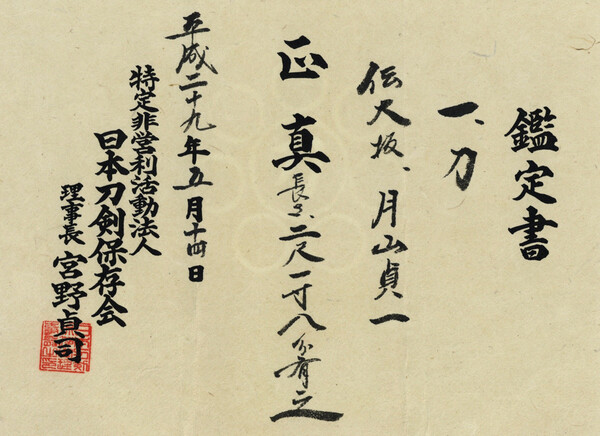 鑑定書
一、刀
伝大坂、月山貞一
正真 長さ、二尺一寸八分有之
平成二十九年五月十四日
特定非営利活動法人
日本刀剣保存会
理事長 宮野貞司